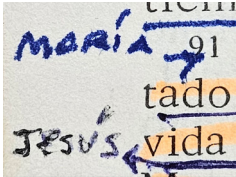 MARÍA
91
tado
JESÚS vida